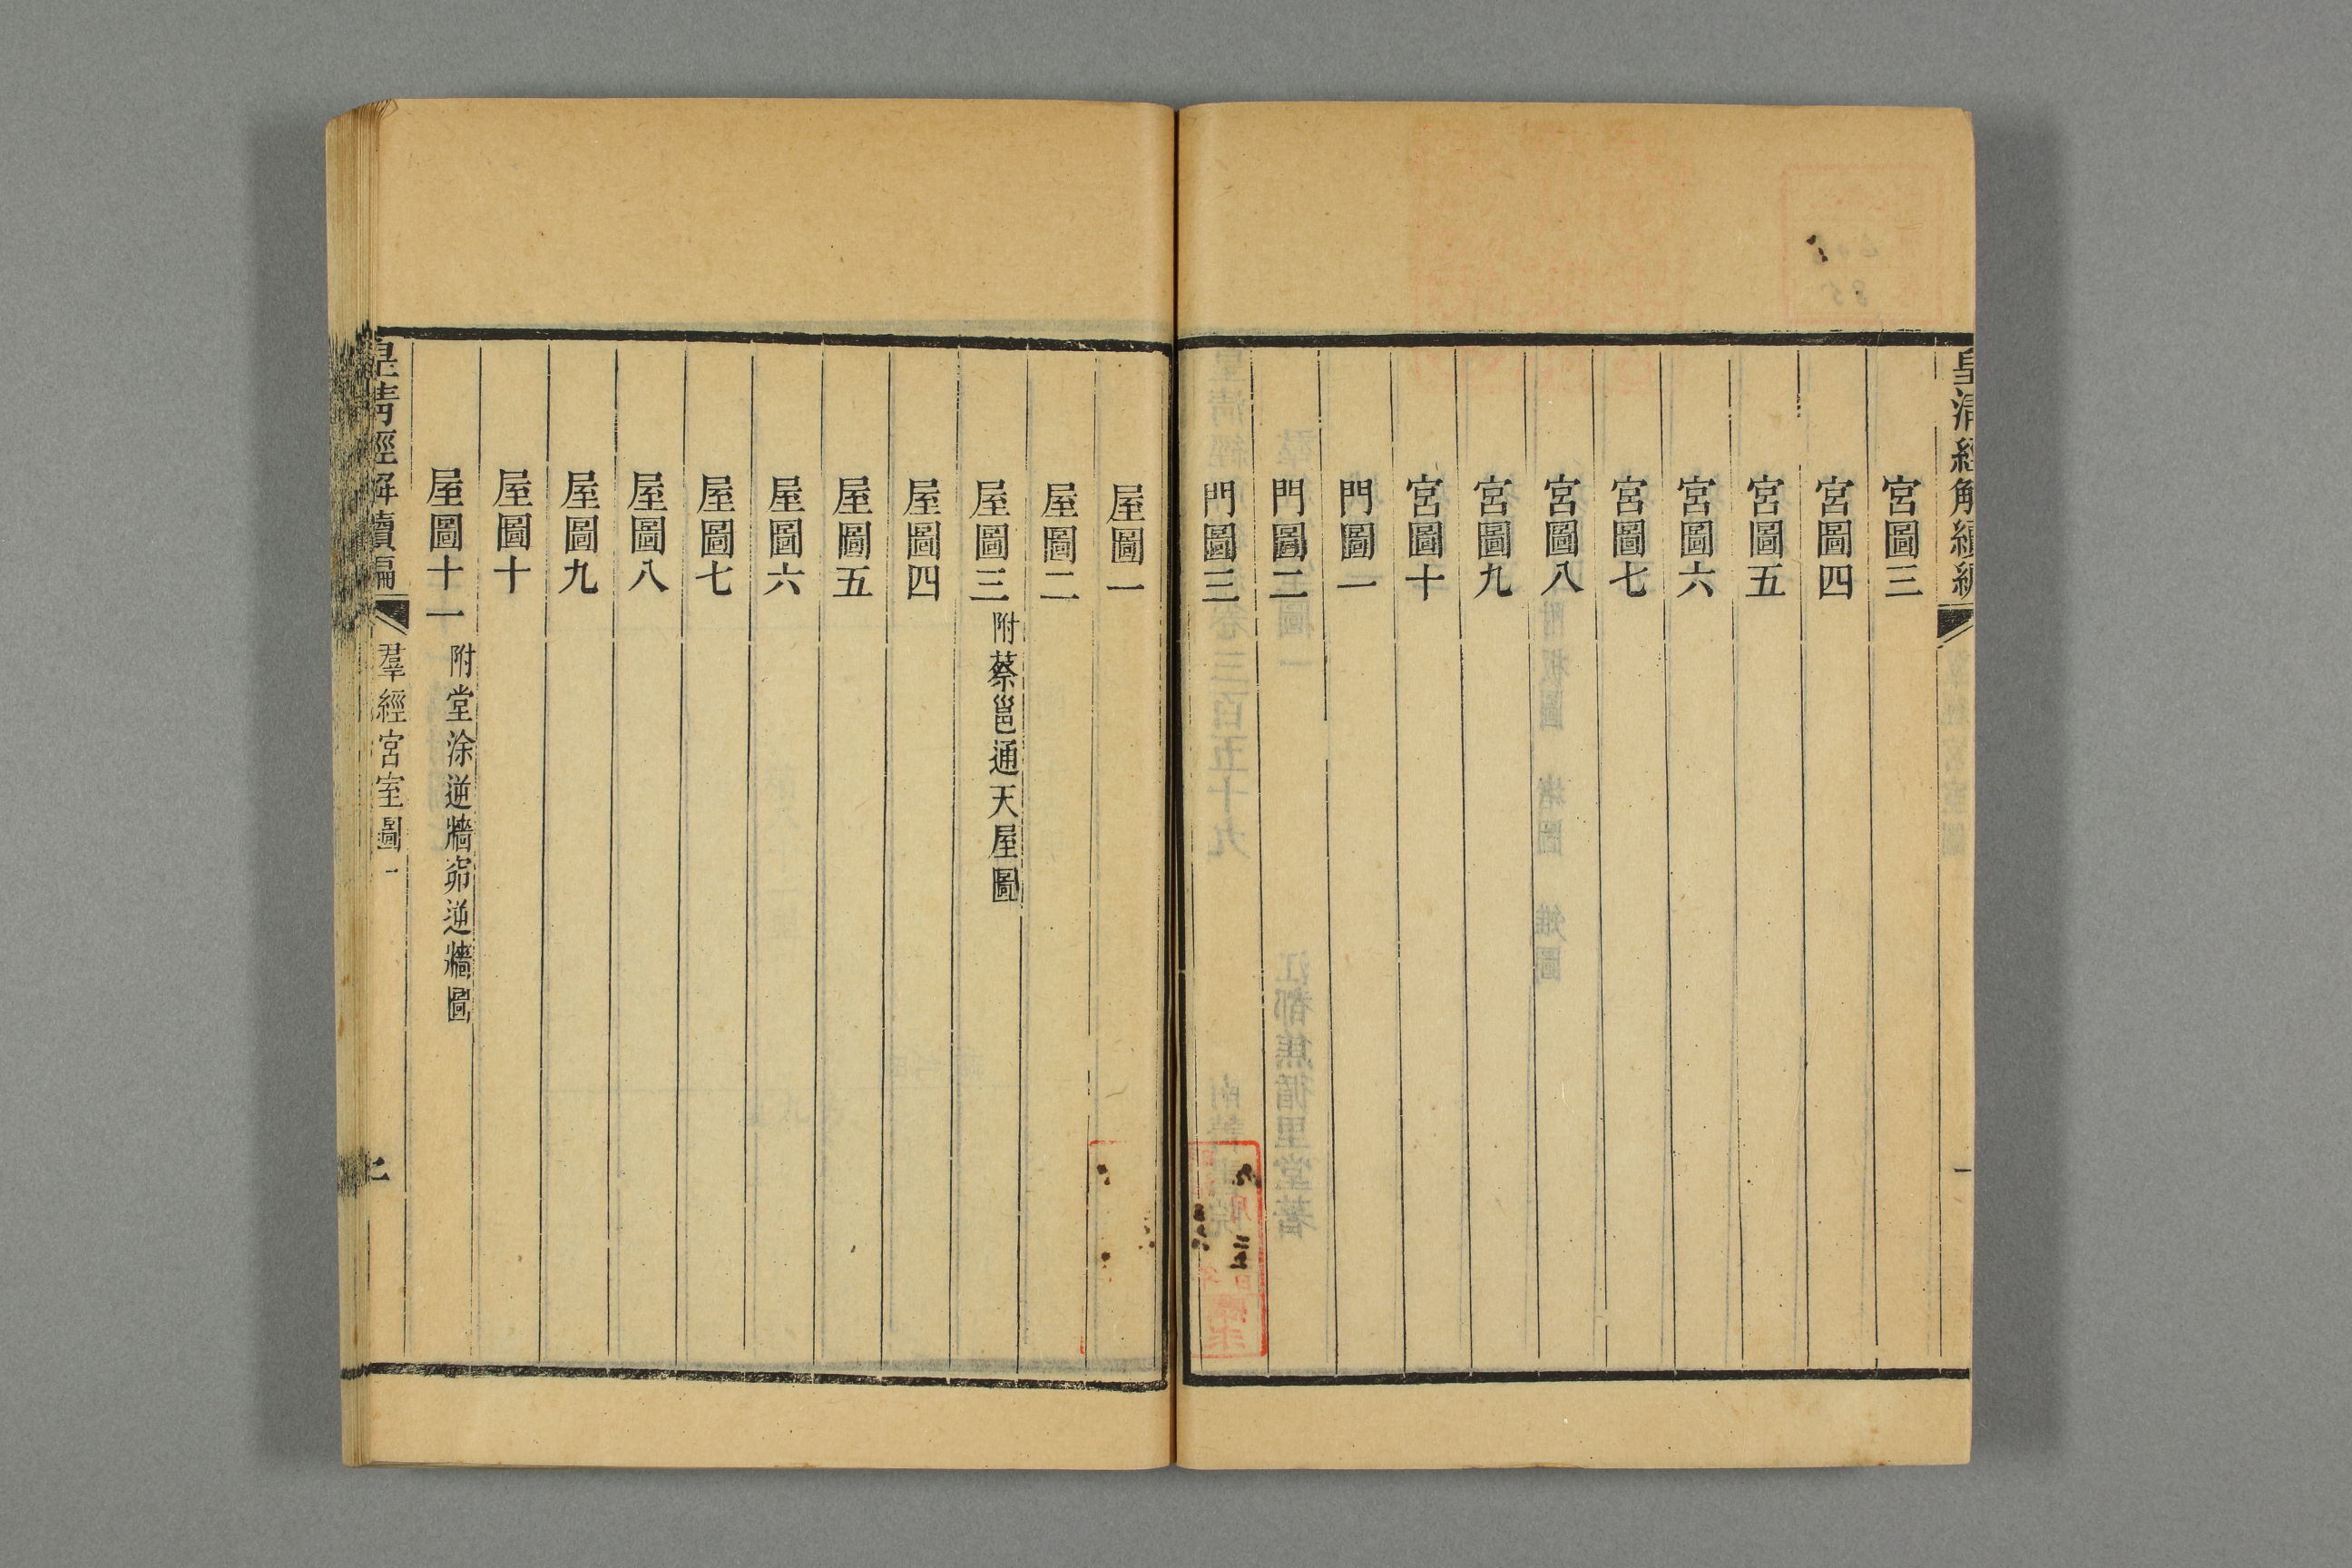 皇清經解續編
一
宮圖三
宮圖四
宮圖五
宮圖六
宮圖七
宮圖八
宮圖九
宮圖十
門圖一
門圖二
門圖三
屋圖一
屋圖二
屋圖三 附蔡邕通天屋圖
屋圖四
屋圖五
屋圖六
屋圖七
屋圖八
屋圖九
屋圖十
屋圖十一 附堂涂逆牆
皇清經解續編 羣經宮室圖一